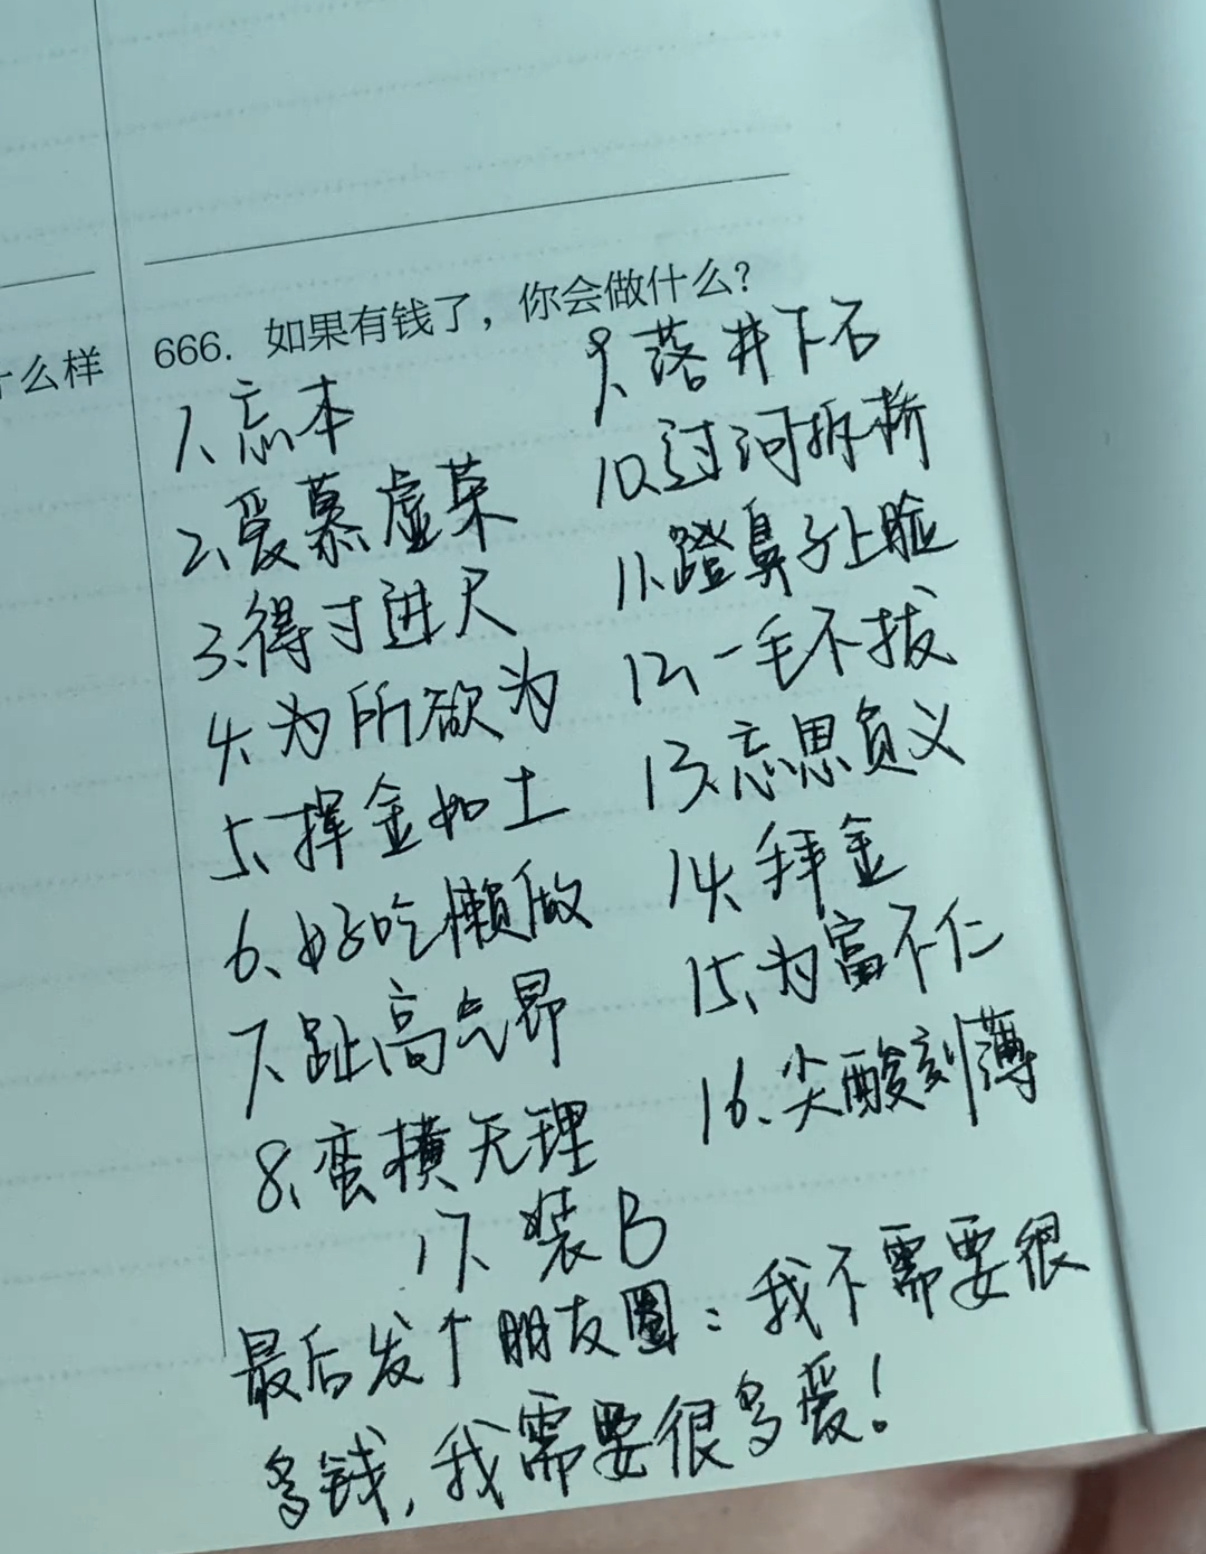 么样
666. 如果有钱了，你会做什么？
1、忘本
2、爱慕虚荣
3、得寸进尺
4、为所欲为
5、挥金如土
6、好吃懒做
7、趾高气昂
8、蛮横无理
9、落井下石
10、过河拆桥
11、蹬鼻子上脸
12、一毛不拔
13、忘恩负义
14、拜金
15、为富不仁
16、尖酸刻薄
17、装B
最后发个朋友圈：我不需要很
多钱，我需要很多爱！